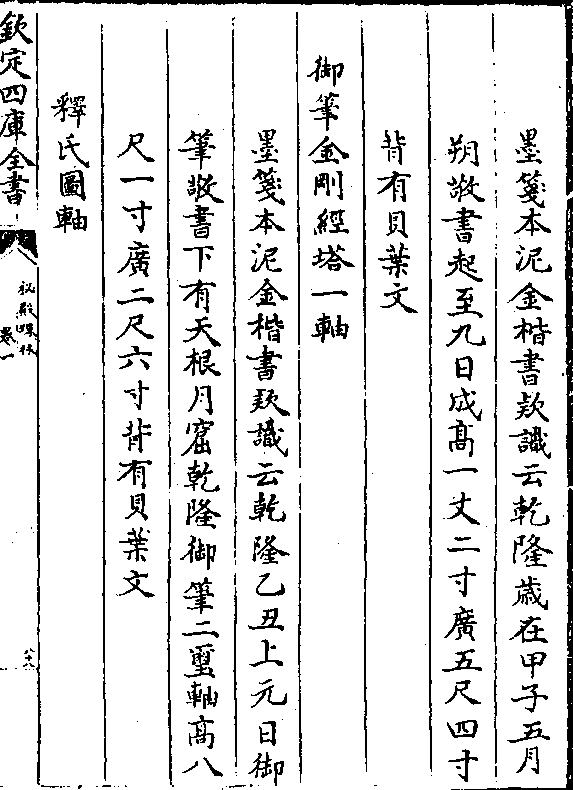 墨箋本泥金楷書款識云乾隆歳在甲子五月
朔敬書起至九日成髙一丈二寸廣五尺四寸
背有貝葉文
御筆金剛經塔一軸
墨箋本泥金楷書款識云乾隆乙丑上元日御
筆敬書下有天根月窟乾隆御筆二璽軸髙八
尺一寸廣二尺六寸背有貝葉文
釋氏圖軸
欽定四庫全書
秘殿珠林
卷一